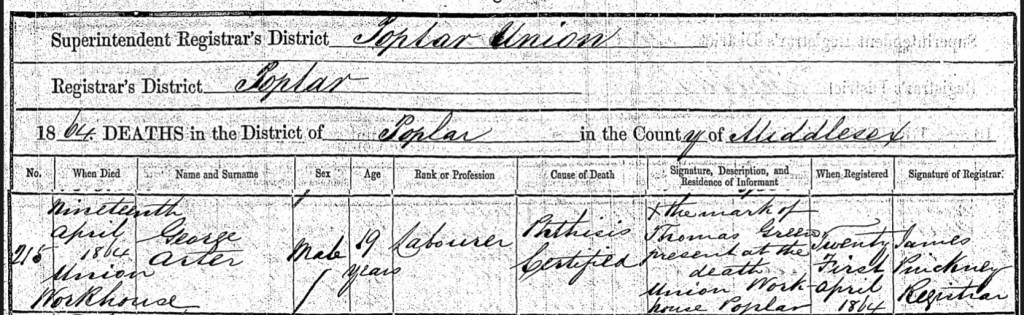 Superintendent Registrar's District Poplar Union
Registrar's District Poplar
1864. DEATHS in the District of Poplar in the County of Middlesex
No. When Died Name and Surname Sex Age Rank or Profession Cause of Death Signature, Description, and Residence of Informant When Registered Signature of Registrar.
215
Nineteenth
April
1864
Union
Workhouse
George
Arter
Male
19
years
Labourer
Phthisis
Certified
X the mark of
Thomas Green
present at the
death
Union Work-
house Poplar
Twenty
First
April
1864
James
Pinckney
Registrar